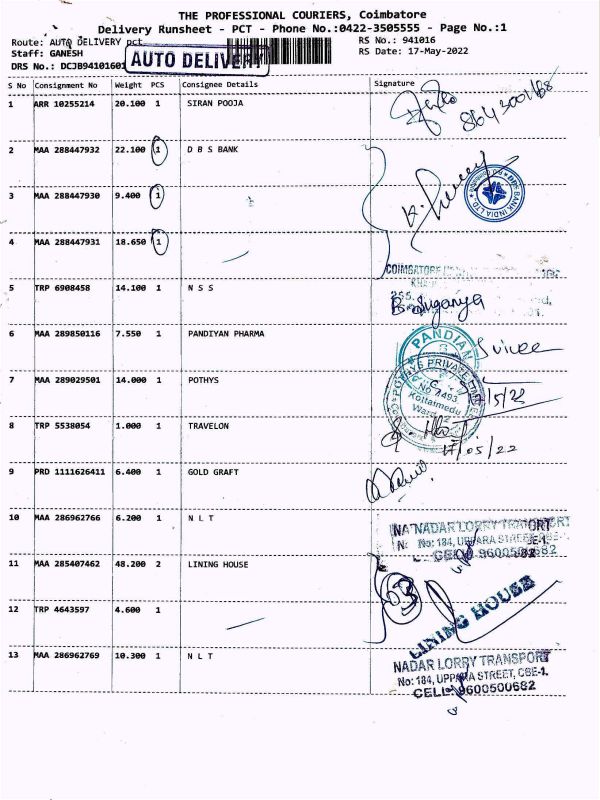 THE PROFESSIONAL COURIERS, Coimbatore
Delivery Runsheet - PCT - Phone No.:0422-3505555 - Page No.:1
Route: AUTO DELIVERY pct
RS No.: 941016
Staff: GANESH
RS Date: 17-May-2022
DRS No.: DCJB94101601
AUTO DELIVERY
S No Consignment No Weight PCS Consignee Details Signature
1 ARR 10255214 20.100 1 SIRAN POOJA
2 MAA 288447932 22.100 1 D B S BANK
3 MAA 288447930 9.400 1
DBS BANK INDIA LTD.
4 MAA 288447931 18.650 1
COIMBATORE
5 TRP 6908458 14.100 1 N S S
B. Suganya
6 MAA 289850116 7.550 1 PANDIYAN PHARMA
PANDIAN
7 MAA 289029501 14.000 1 POTHYS
PRIVATE LIMITED
Kottaimedu
Ward
8 TRP 5538054 1.000 1 TRAVELON
17/05/22
9 PRD 1111626411 6.400 1 GOLD GRAFT
10 MAA 286962766 6.200 1 N L T
NADAR LORRY TRANSPORT
No: 184, UPPARA STREET, CBE-1.
CELL: 9600500682
11 MAA 285407462 48.200 2 LINING HOUSE
03
LINING HOUSE
12 TRP 4643597 4.600 1
13 MAA 286962769 10.300 1 N L T
NADAR LORRY TRANSPORT
No: 184, UPPARA STREET, CBE-1.
CELL: 9600500682